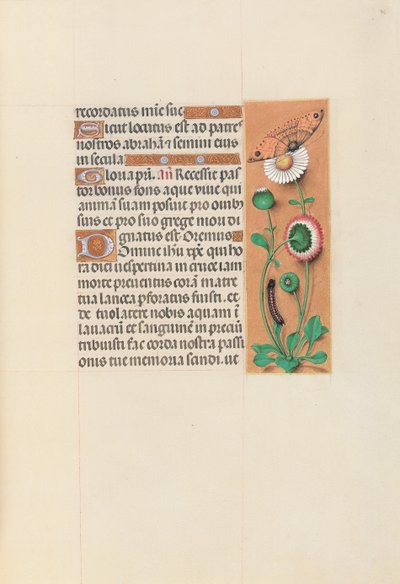 recordatus mīe sue
Sicut locutus est ad patres
nostros abrahā ⁊ semini eius
in secula
Gloria pr̄i. an̄ Recessit pas
tor bonus fons aque viue qui
animā suam posuit pro ouib᷒
suis et pro suo grege mori di
gnatus est. Oremus
Domine ihū xp̄e qui ho
ra diei vespertina in cruce iam
morte preuentus corā matre
tua lancea perforatus fuisti. et
de tuo latere nobis aquam ī
lauacrū et sanguinē in preciū
tribuisti fac corda nostra passi
onis tue memoria scindi. ut